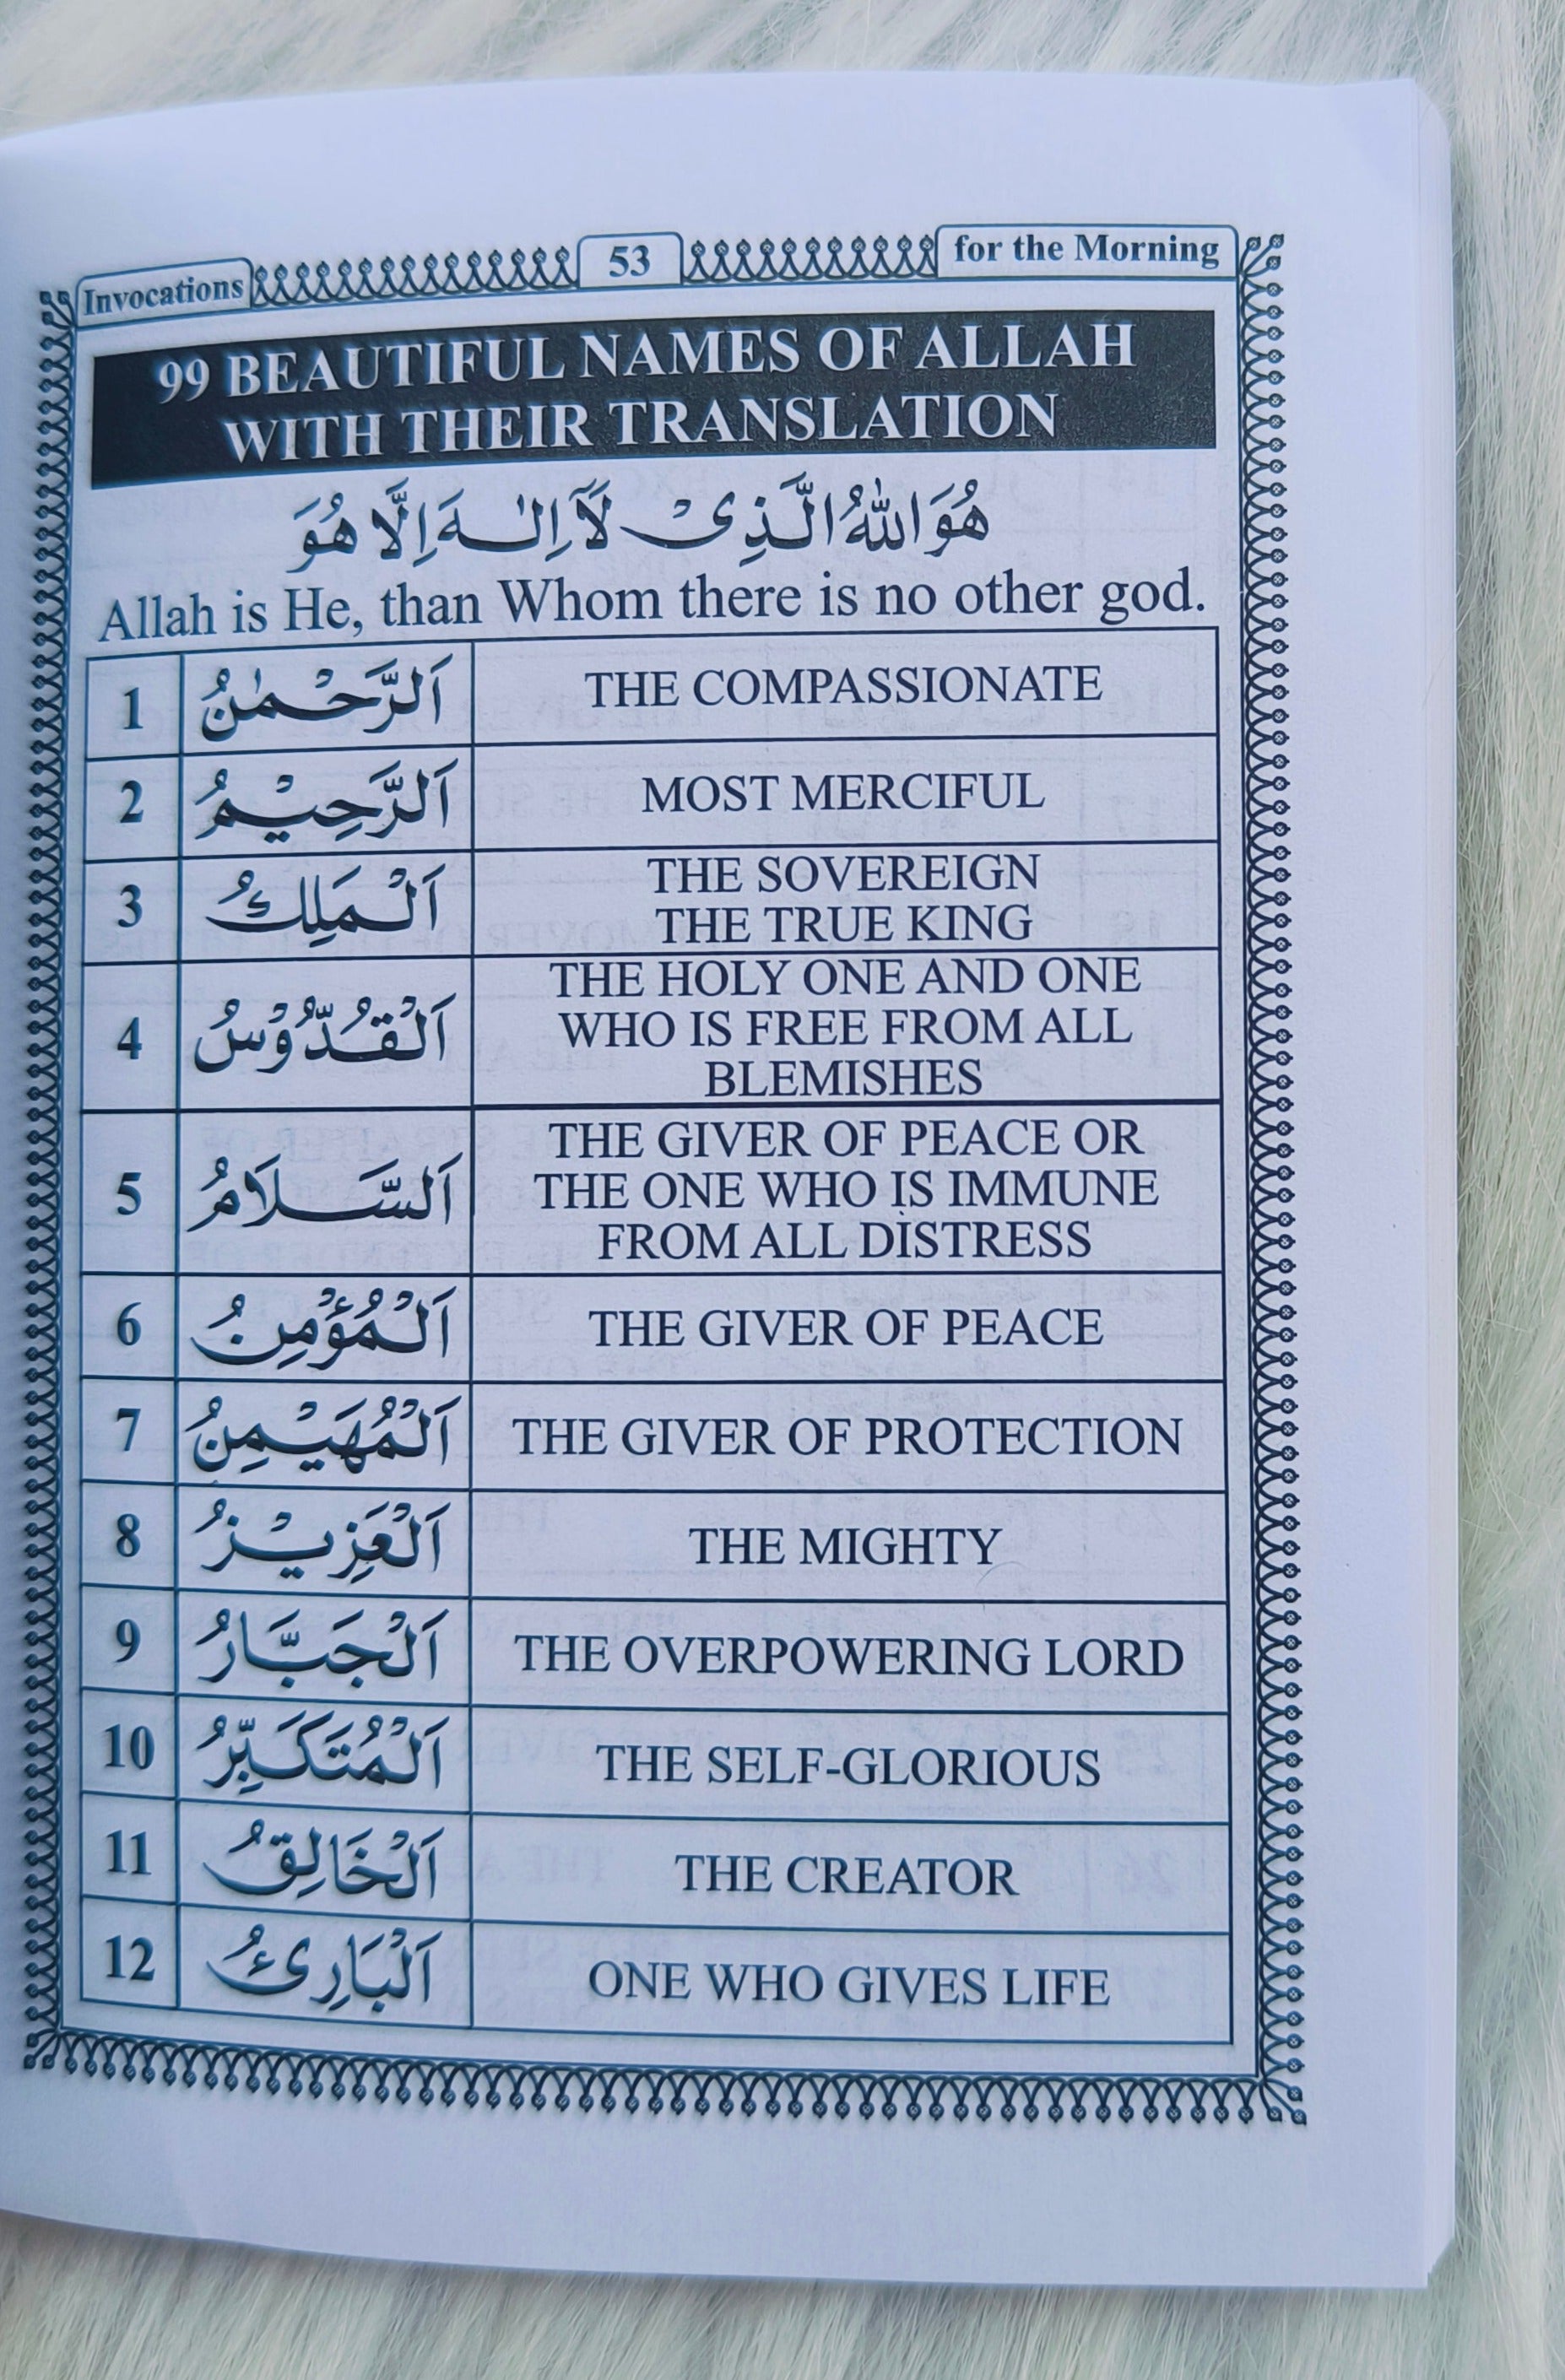 Invocations 53 for the Morning
99 BEAUTIFUL NAMES OF ALLAH
WITH THEIR TRANSLATION
هُوَ اللّٰهُ الَّذِىْ لَآ اِلٰـهَ اِلَّا هُوَ
Allah is He, than Whom there is no other god.
1 اَلرَّحْمٰنُ THE COMPASSIONATE
2 اَلرَّحِيْمُ MOST MERCIFUL
3 اَلْمَلِكُ THE SOVEREIGN
THE TRUE KING
4 اَلْقُدُّوْسُ THE HOLY ONE AND ONE
WHO IS FREE FROM ALL
BLEMISHES
5 اَلسَّلَامُ THE GIVER OF PEACE OR
THE ONE WHO IS IMMUNE
FROM ALL DISTRESS
6 اَلْمُؤْمِنُ THE GIVER OF PEACE
7 اَلْمُهَيْمِنُ THE GIVER OF PROTECTION
8 اَلْعَزِيْزُ THE MIGHTY
9 اَلْجَبَّارُ THE OVERPOWERING LORD
10 اَلْمُتَكَبِّرُ THE SELF-GLORIOUS
11 اَلْخَالِقُ THE CREATOR
12 اَلْبَارِئُ ONE WHO GIVES LIFE